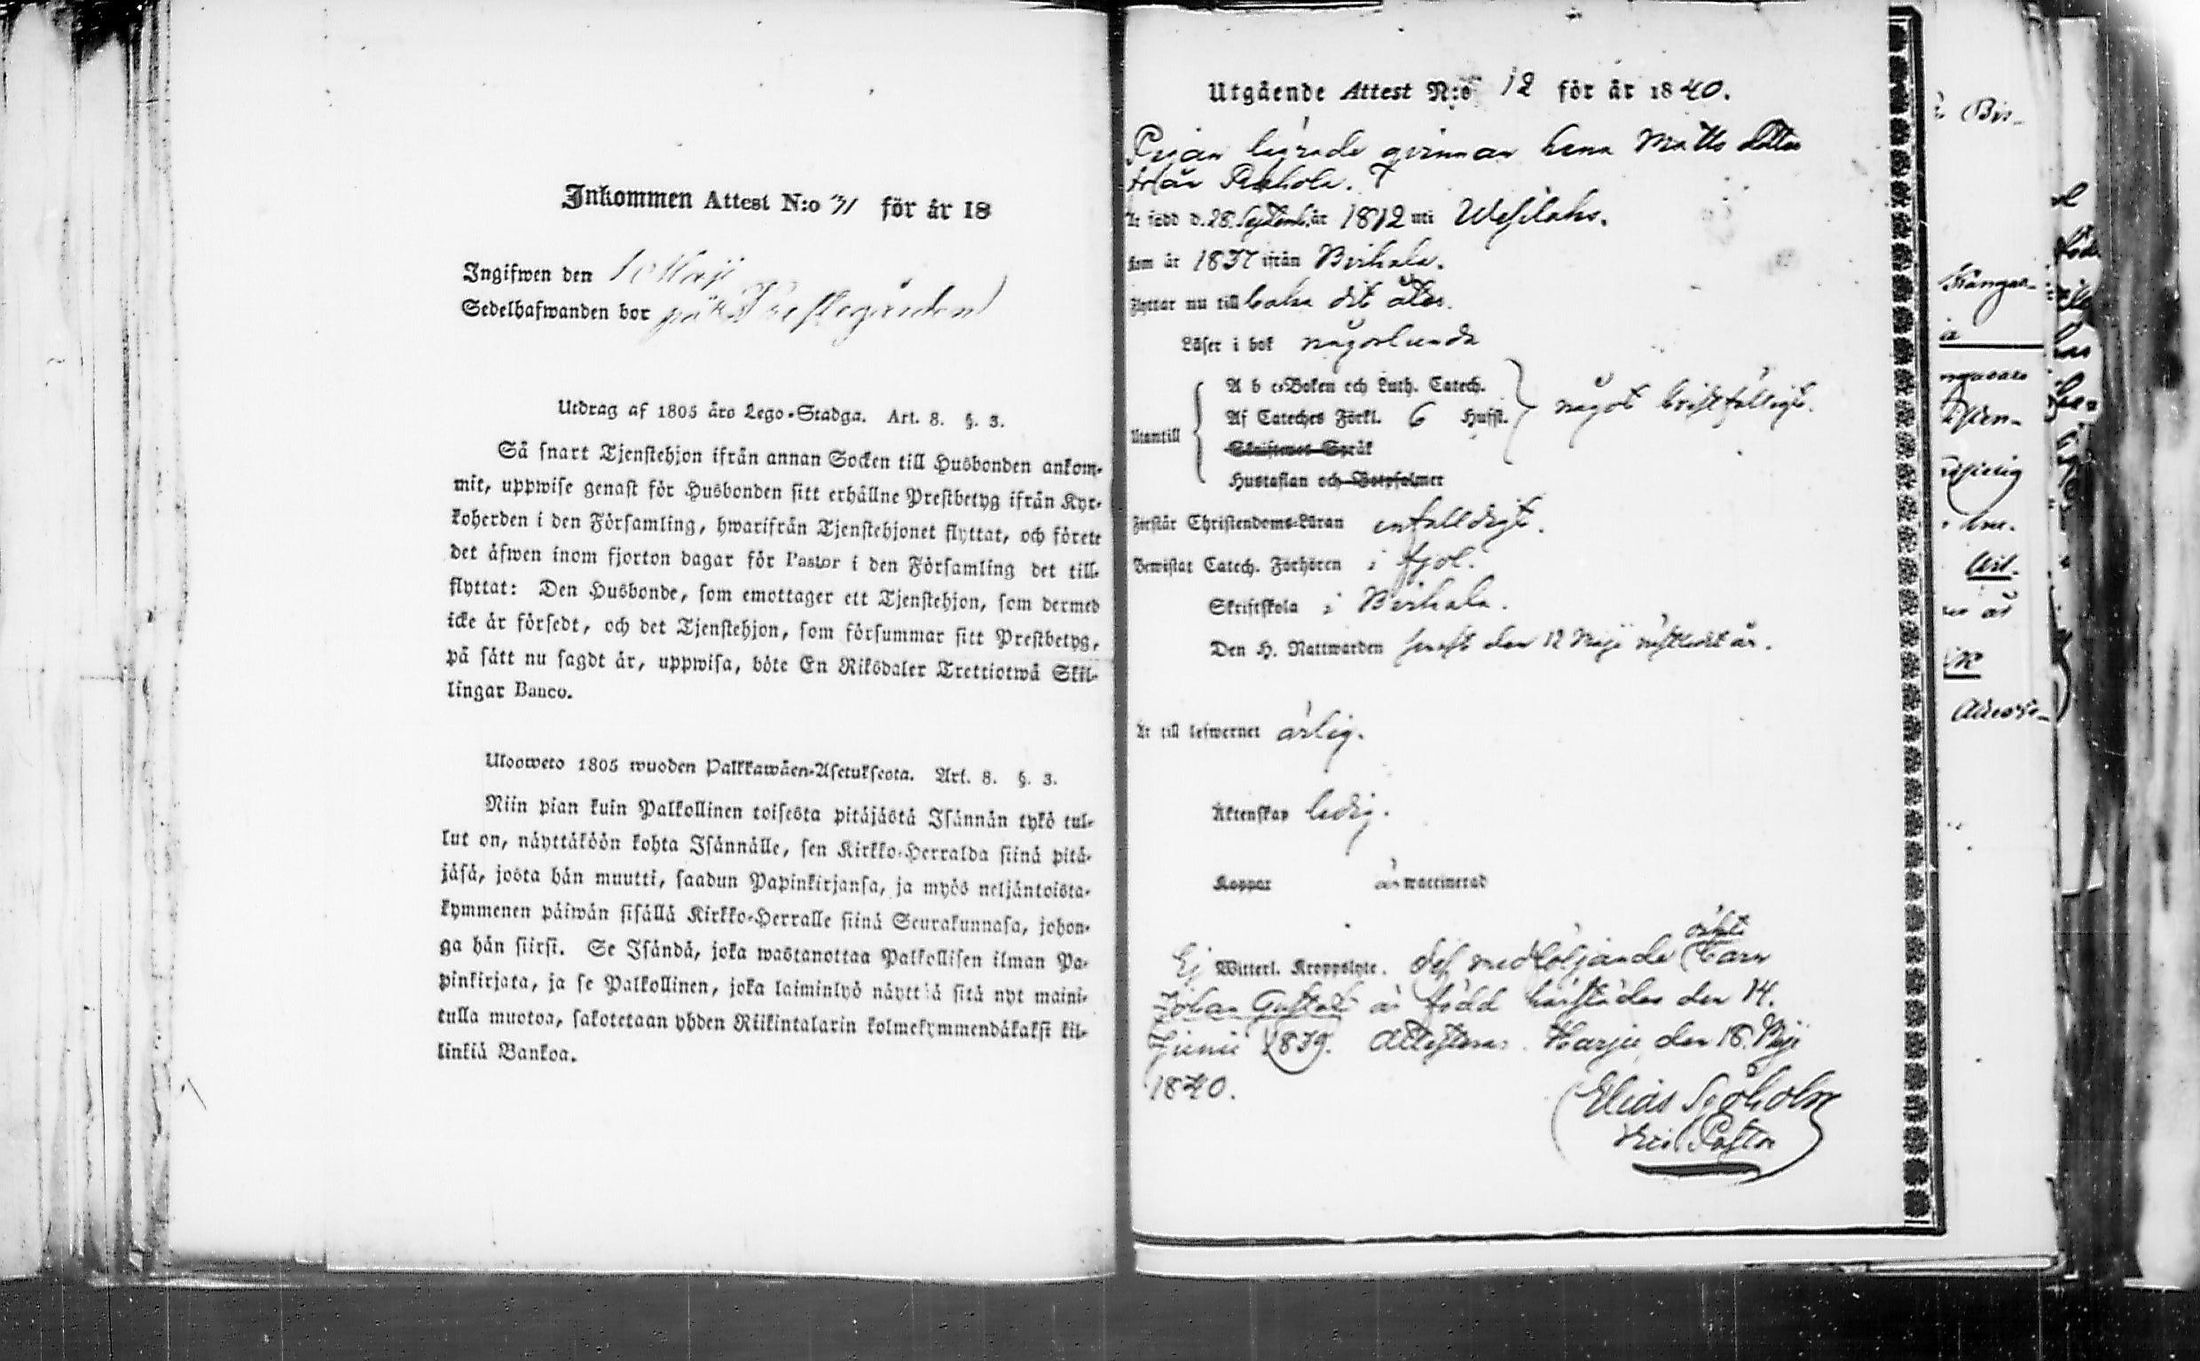 Inkommen Attest N:o 31 för år 18
Ingifwen den
Sedelhafwanden bor på Prestegården
Utdrag af 1805 års Lego-Stadga. Art. 8. §. 3.
Så snart Tjenstehjon ifrån annan Socken till Husbonden ankom-
mit, uppwise genast för Husbonden sitt erhållne Prestbetyg ifrån Kyr-
koherden i den Församling, hwarifrån Tjenstehjonet flyttat, och förete
det åfwen inom fjorton dagar för Pastor i den Församling det till-
flyttat: Den Husbonde, som emottager ett Tjenstehjon, som dermed
icke är försedt, och det Tjenstehjon, som försummar sitt Prestbetyg,
på sått nu sagdt är, uppwisa, böte En Riksdaler Trettiotwå Skil-
lingar Banco.
Ulosweto 1805 wuoden Palkkawäen-Asetuksesta. Art. 8. §. 3.
Niin pian kuin Palkollinen toisesta pitäjästä Isännän tykö tul-
lut on, näyttäköön kohta Isännälle, sen Kirkko-Herralda siinä pitä-
jäsä, josta hän muutti, saadun Papinkirjansa, ja myös neljäntoista-
kymmenen päiwän sisällä Kirkko-Herralle siinä Seurakunnasa, johon-
ga hän siirsi. Se Isändä, joka wastanottaa Palkollisen ilman Pa-
pinkirjata, ja se Palkollinen, joka laiminlyö näyttää sitä nyt maini-
tulla muotoa, sakotetaan yhden Riikintalarin kolmekymmendäkaksi kil-
linkiä Bankoa.
Utgående Attest N:o 12 för år 1840.
qvinnan Matts dotter
från
Är född d. 28. Septemb. år 1812 uti Wesilaks.
Kom år 1837 ifrån Birkala.
Flyttar nu till baka dit åter.
Läser i bok någorlunda
Utantill
A b c-Boken och Luth. Catech.
Af Cateches Förkl. 6 Hufst.
något bristfälligt.
Skriftenes Språk
Hustaflan och Botpsalmer
Förstår Christendoms-Läran enfalldigt.
Bewistat Catech. Förhören i fjol.
Skriftskola i Birkala.
Den H. Nattwarden senast den 12 Maji sistledit år.
Är till lefwernet ärlig.
Äktenskap ledig.
Koppar är waccinerad
Ej Witterl. Kroppslyte. Des medföljande oäkta barn
Johan Gustaf är född härstädes den 14.
Junii 1839. Attesteras. Harju den 18. Maji
1840.
Elias Sjöholm
Vice Pastor